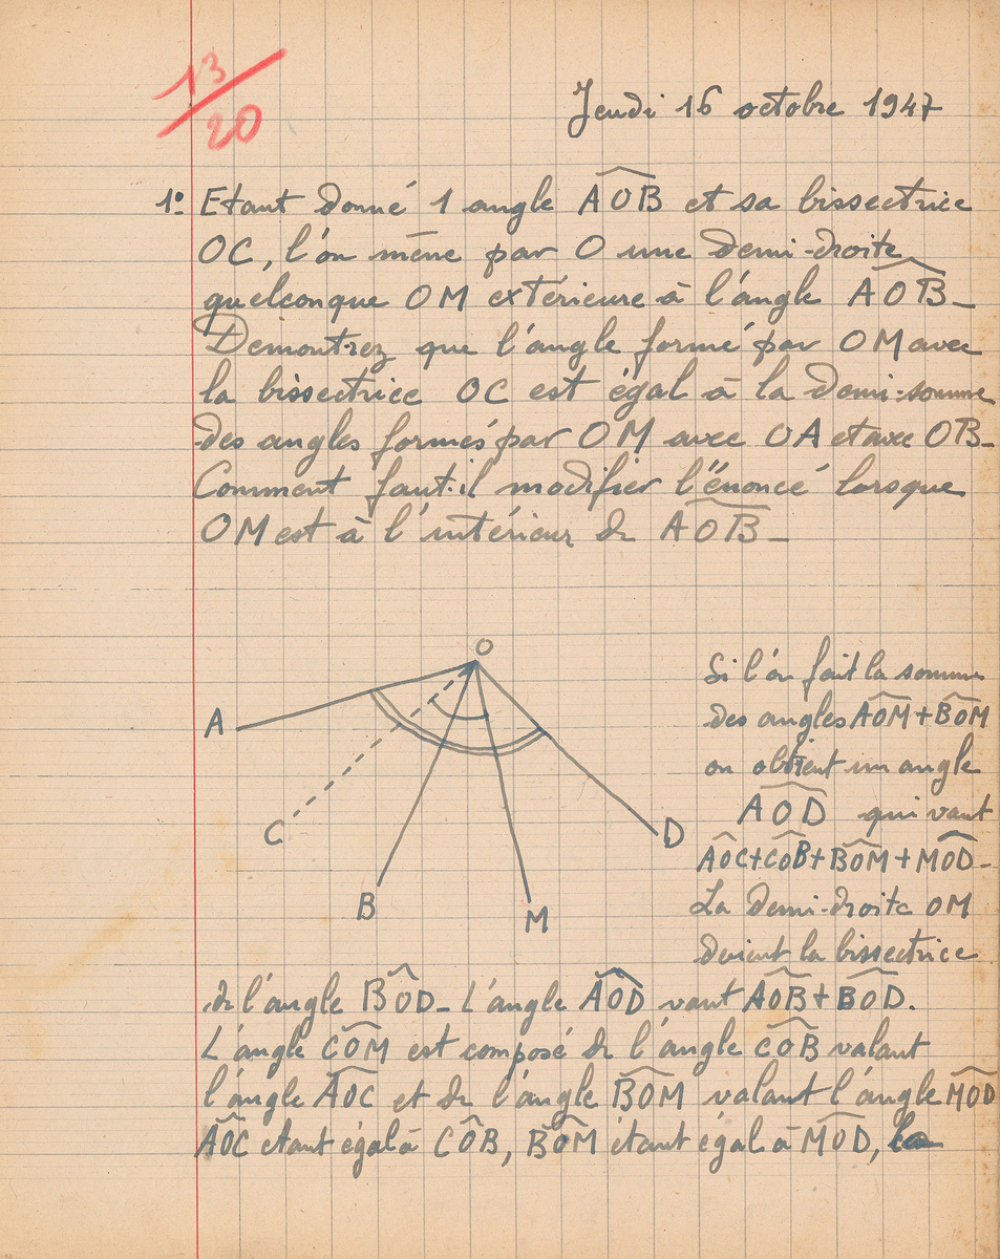 13/20
Jeudi 16 octobre 1947
1º Etant donné 1 angle AOB et sa bissectrice
OC, l'on mène par O une demi-droite
quelconque OM extérieure à l'angle AOB_
Démontrez que l'angle formé par OM avec
la bissectrice OC est égal à la demi-somme
des angles formés par OM avec OA et avec OB_
Comment faut-il modifier l'énoncé lorsque
OM est à l'intérieur de AOB_
O
A
C
B
M
D
Si l'on fait la somme
des angles AOM+BOM
on obtient un angle
AOD qui vaut
AOC+COB+BOM+MOD_
La demi-droite OM
devient la bissectrice
de l'angle BOD_ L'angle AOD vaut AOB+BOD.
L'angle COM est composé de l'angle COB valant
l'angle AOC et de l'angle BOM valant l'angle MOD
AOC étant égal à COB, BOM étant égal à MOD, la